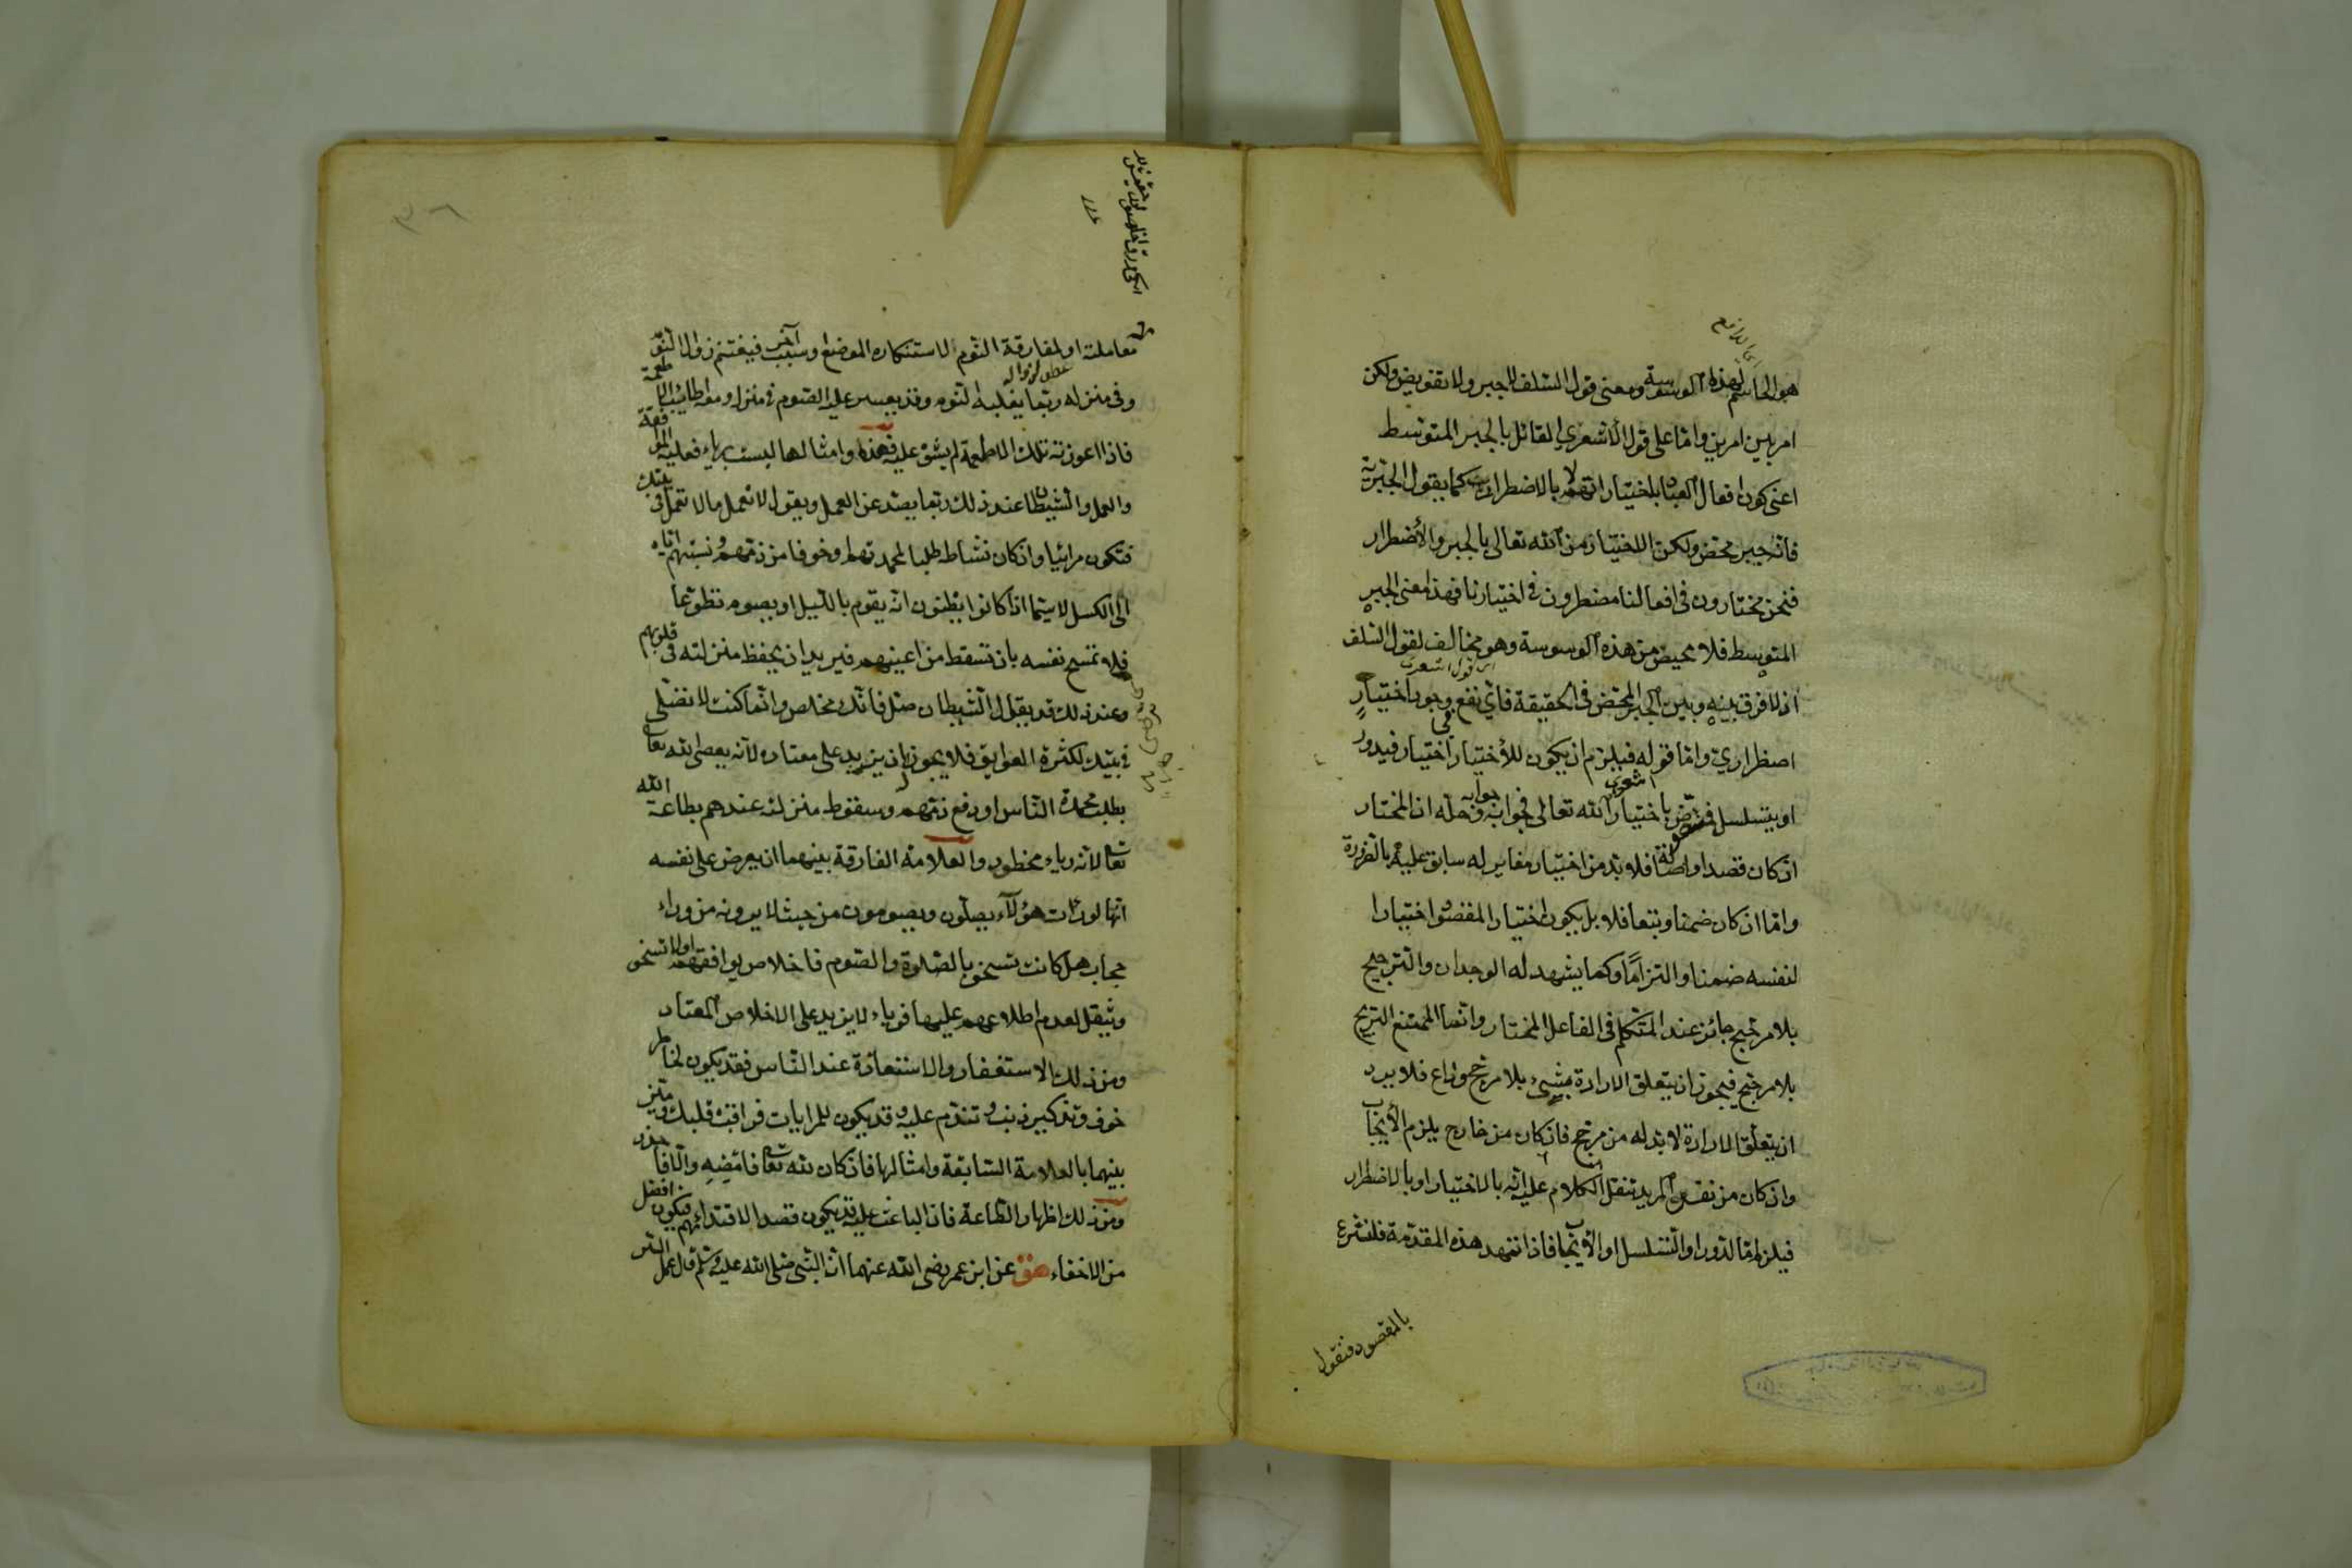 هو الحاسم لهذه الوسوسة ومعنى قول السلف لا جبر ولا تفويض ولكن
امر بين امرين واما على قول الأشعري القائل بالجبر المتوسط
اعنى كون افعال العباد باختيارهم لا بالاضطرار كما يقول الجبرية
فانه جبر محض ولكن الاختيار من الله تعالى بالجبر والأضطرار
فنحن مختارون فى افعالنا مضطرون فى اختيارنا فهذا معنى الجبر
المتوسط فلا محيص من هذه الوسوسة وهو مخالف لقول السلف
اذ لا فرق بينه وبين الجبر المحض فى الحقيقة فاى نفع وجود اختيار
اضطراري واما قوله فيلزم ان يكون للأختيار اختيار فيدور
او يتسلسل باختيار الله تعالى فجوابه وحله ان المختار
ان كان قصدا واصالة فلا بد من اختيار مغاير له سابق عليه بالضرورة
واما ان كان ضمنا وتبعا فلا بل يكون اختيار المقصود اختيارا
لنفسه ضمنا والتزاما وكما يشهد له الوجدان والترجيح
بلا مرجح جائز عند المتكلم فى الفاعل المختار وانما الممتنع الترجح
بلا مرجح فيجوز ان يتعلق الارادة بشئ بلا مرجح وداع فلا يرد
ان يتعلق الارادة لا بد له من مرجح فان كان من خارج يلزم الأيجاب
وان كان من نفس المريد ننقل الكلام عليه انه بالاختيار او بالاضطرار
فيلزم اما الدور او التسلسل او الأيجاب فاذا تمهد هذه المقدمة فلنشرع
بالمقصود فنقول
معاملته او لمفارقة النوم لاستنكاره الموضع او سبب آخر فيغتنم زوال النوم
وفى منزله ربما يغلبه النوم وقد يعسر عليه الصوم فى منزله ومعه اطائب الاطعمة
فاذا اعوزته تلك الاطعمة لم يشق عليه فهذه وامثالها ليست برياء فعليه الموافقة
والعمل والشيطان عند ذلك ربما يصد عن العمل ويقول لا تعمل ما لا تعمل فى بيتك
فتكون مرائيا وان كان نشاطه طلبا لمحمدتهم او خوفا من ذمهم ونسبتهم اياه
الى الكسل لاسيما اذا كانوا يظنون انه يقوم بالليل او يصوم تطوعا
فلا تسمح نفسه بان تسقط من اعينهم فيريد ان يحفظ منزلته فى قلوبهم
وعند ذلك قد يقول الشيطان صل فانك مخلص وانما كنت لا تصلى
فى بيتك لكثرة العوايق فلا يجوز ان يزيد على معتاده لانه يعصى الله تعالى
بطلب محمدة الناس او دفع ذمهم وسقوط منزلته عندهم بطاعة الله
تعالى لانه رياء محظور والعلامة الفارقة بينهما ان يعرض على نفسه
انها لو رات هؤلآء يصلون ويصومون من حيث لا يرونه من وراء
حجاب هل كانت تسخو بالصلوة والصوم فاخلاص يوافقهم او لا تسخو
ويثقل لعدم اطلاعهم عليها فرياء لا يزيد على الاخلاص المعتاد
ومن ذلك الاستغفار والاستعاذة عند الناس فقد يكون لخاطر
خوف وتذكير ذنب وتندم عليه وقد يكون للمرايات فراقب قلبك وميز
بينهما بالعلامة السابقة وامثالها فان كان لله تعالى فامضه والا فاحذر
ومن ذلك اظهار الطاعة فان الباعث عليه قد يكون قصد الاقتداء بهم فيكون افضل
من الاخفاء هق عن ابن عمر رضى الله عنهما ان النبى صلى الله عليه وسلم قال عمل السر